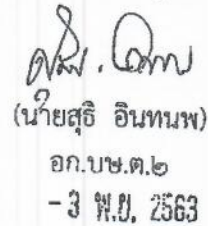 (นายสุธิ อินทนพ)
อก.บษ.ต.๒
-3 พ.ย. 2563